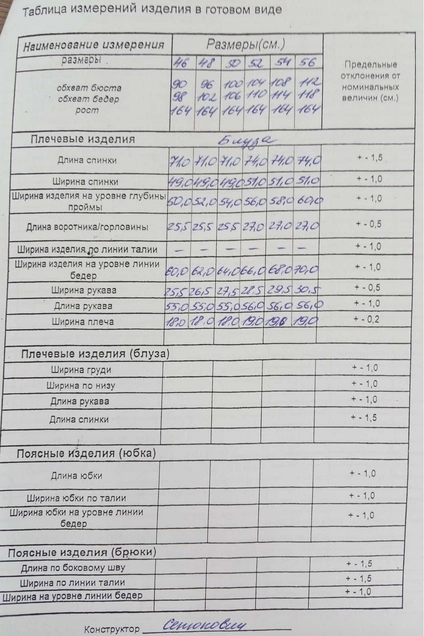 Таблица измерений изделия в готовом виде
Наименование измерения Размеры(см.) Предельные отклонения от номинальных величин (см.)
размеры 46 48 50 52 54 56
обхват бюста 90 96 100 104 108 112
обхват бедер 98 102 106 110 114 118
рост 164 164 164 164 164 164
Плечевые изделия Блуза
Длина спинки 71,0 71,0 71,0 74,0 74,0 74,0 + - 1,5
Ширина спинки 49,0 49,0 49,0 51,0 51,0 51,0 + - 1,0
Ширина изделия на уровне глубины проймы 50,0 52,0 54,0 56,0 58,0 60,0 + - 1,0
Длина воротника/горловины 25,5 25,5 25,5 27,0 27,0 27,0 + - 0,5
Ширина изделия по линии талии – – – – – – + - 1,0
Ширина изделия на уровне линии бедер 60,0 62,0 64,0 66,0 68,0 70,0 + - 1,0
Ширина рукава 25,5 26,5 27,5 28,5 29,5 30,5 + - 0,5
Длина рукава 55,0 55,0 55,0 56,0 56,0 56,0 + - 1,0
Ширина плеча 18,0 18,0 18,0 19,0 19,0 19,0 + - 0,2
Плечевые изделия (блуза)
Ширина груди + - 1,0
Ширина по низу + - 1,0
Длина рукава + - 1,0
Длина спинки + - 1,5
Поясные изделия (юбка)
Длина юбки + - 1,0
Ширина юбки по талии + - 1,0
Ширина юбки на уровне линии бедер + - 1,0
Поясные изделия (брюки)
Длина по боковому шву + - 1,5
Ширина по линии талии + - 1,5
Ширина на уровне линии бедер + - 1,0
Конструктор